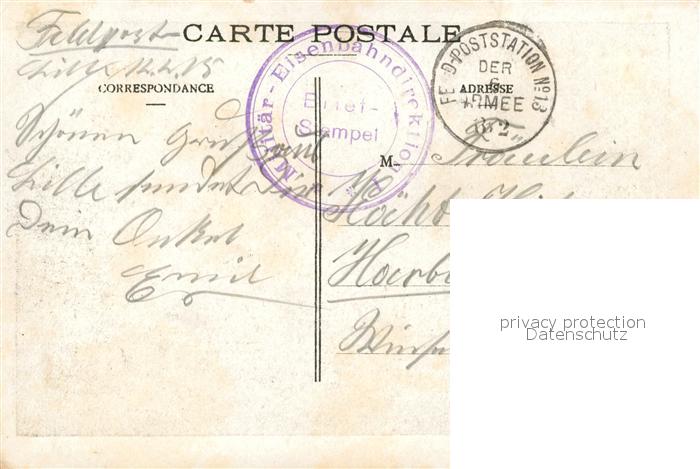 Feldpost
CARTE POSTALE
Lille 12.2.15
CORRESPONDANCE
ADRESSE
Militär-Eisenbahndirektion
Brief-
Stempel
FELD-POSTSTATION No 13
DER
6.
ARMEE
Schönen Gruß aus
Lille sendet Dir
Dein Onkel
Emil
M
Fräulein
privacy protection
Datenschutz